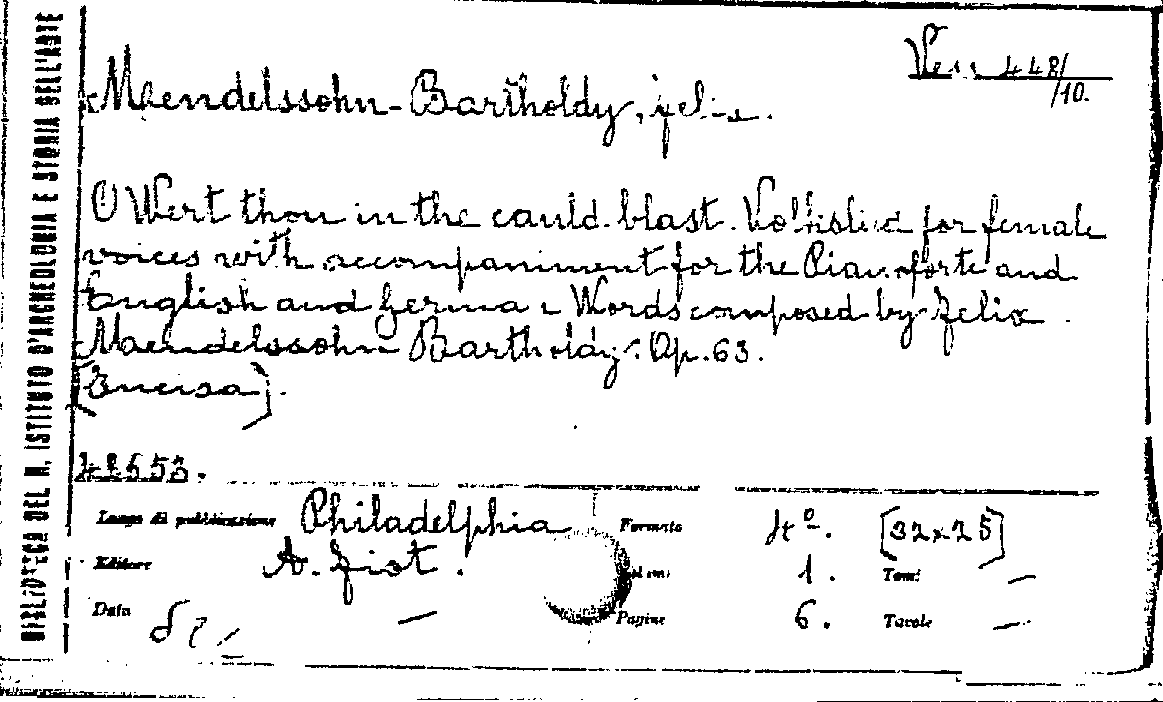 BIBLIOTECA DEL R. ISTITUTO D'ARCHEOLOGIA E STORIA DELL'ARTE
448/10.
Maendelssohn-Bartholdy, felix.
O Wert thou in the cauld blast. Volkslied for female
voices with accompaniment for the Pianoforte and
English and German Words composed by Felix
Maendelssohn Bartholdy: Op. 63.
42553.
Luogo di pubblicazione Philadelphia Formato 4º. [32x25]
Editore A. fiot. Volumi 1. Tomi —
Data — Pagine 6. Tavole —